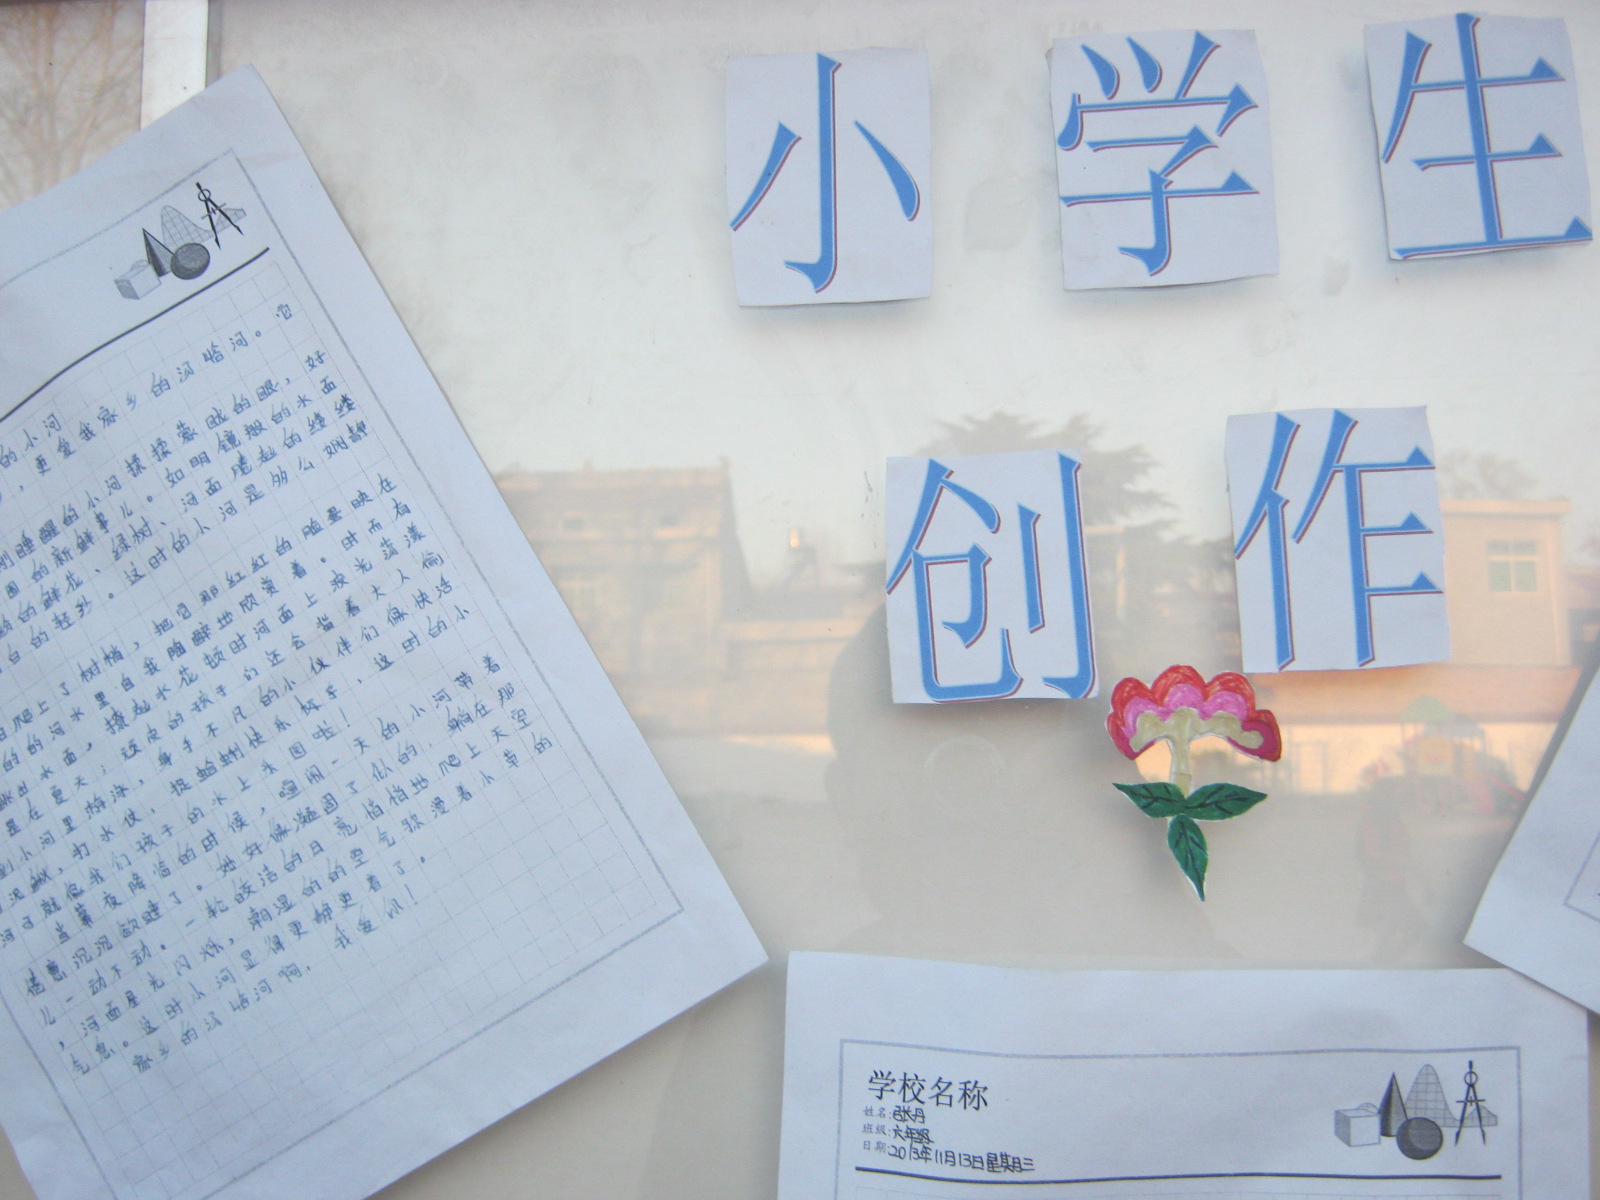 小学生
创作
的小河
，更爱我家乡的河。它
刚睡醒的小河揉揉蒙眬的眼，好
围的新鲜事儿。如明镜般的水面
的鲜花、绿树、河面飘起的缕缕
白的轻纱。这时的小河是多么娴静
爬上了树梢，把它那红红的脸蛋映在
的的河水里自我陶醉地欣赏着。时而有
跃出水面，撩起水花顿时河面上波光荡漾
是在夏天；顽皮的孩子们还会当着大人偷
到小河里游泳，身手不凡的小伙伴们像快活
泥鳅，打水仗，捉蛤蜊快乐极了，这时的小
河可就像我们孩子的水上乐园啦！
当幕夜降临的时候，喧闹一天的小河带着
倦意沉沉欲睡了。她好像凝固了似的，躺在那
儿一动不动。一轮皎洁的月亮悄悄地爬上天空
，河面星光闪烁，潮湿的的空气弥漫着小草的
气息。这时小河显得更静更着了。
家乡的河啊，我爱你！
学校名称
姓名:张丹
班级:六年级
日期:2013年11月13日星期三